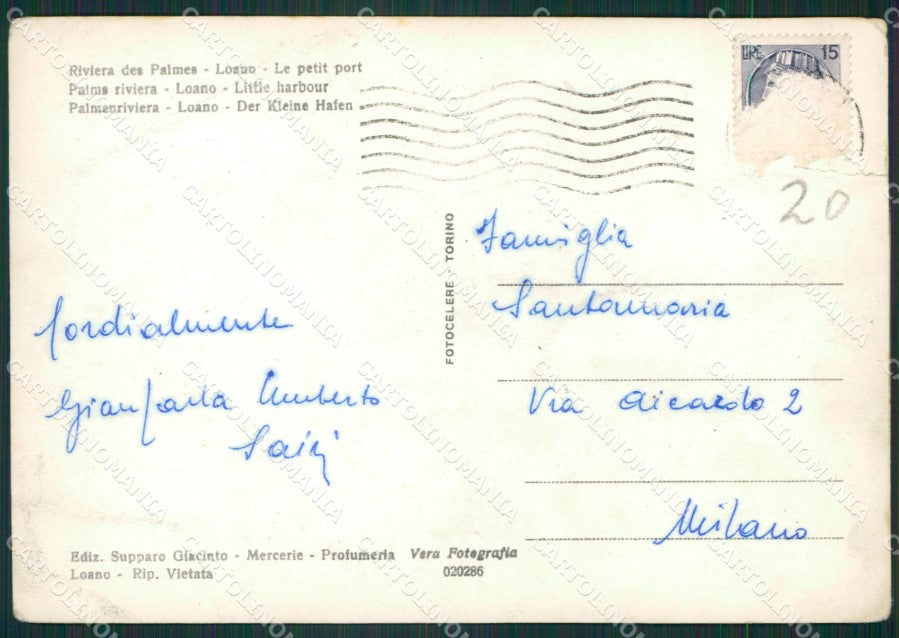 Riviera des Palmes - Loano - Le petit port
Palms riviera - Loano - Little harbour
Palmenriviera - Loano - Der Kleine Hafen
LIRE 15
20
FOTOCELERE - TORINO
Famiglia
Santamaria
Via Aicardo 2
Milano
Cordialmente
Gianfarla Umberto
Ediz. Supparo Giacinto - Mercerie - Profumeria Vera Fotografia
Loano - Rip. Vietata 020286
CARTOLINOMANIA